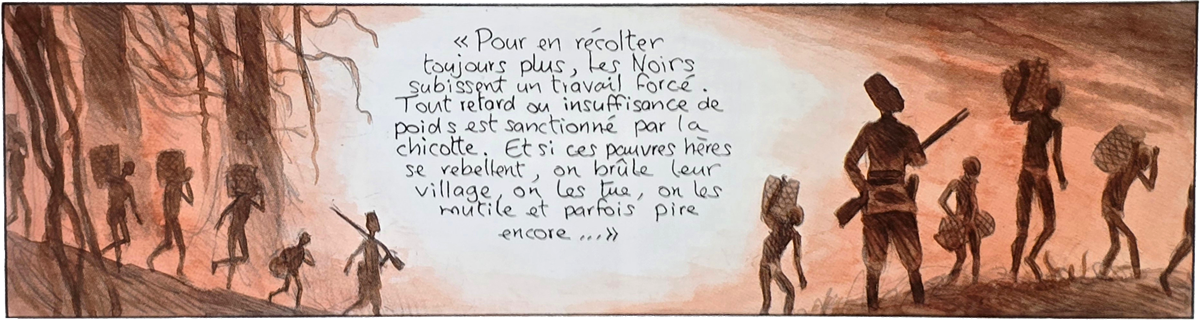 « Pour en récolter
toujours plus, les Noirs
subissent un travail forcé.
Tout retard ou insuffisance de
poids est sanctionné par la
chicotte. Et si ces pauvres hères
se rebellent, on brûle leur
village, on les tue, on les
mutile et parfois pire
encore ...»